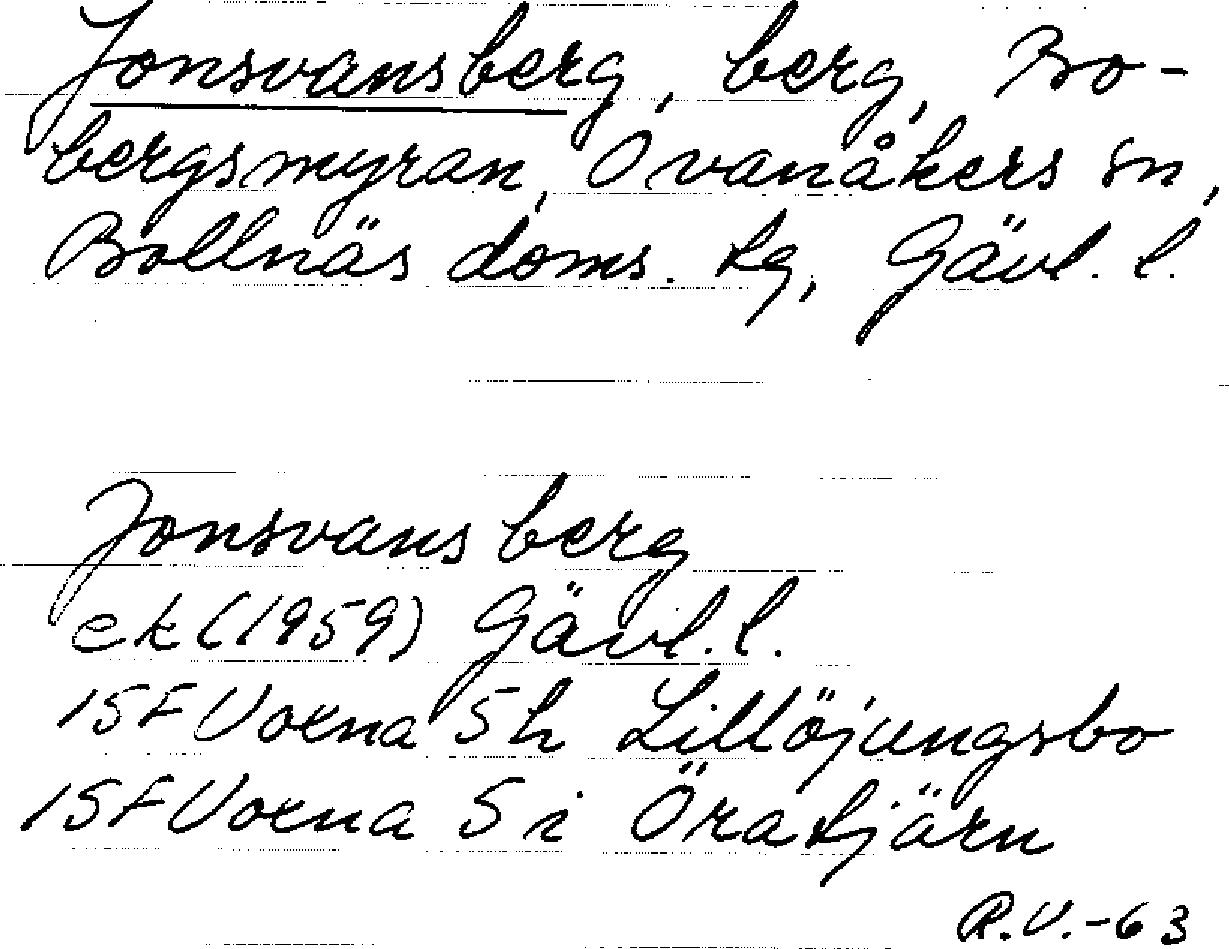 Jonsvansberg, berg, Bo-
bergsmyran, Ovanåkers sn,
Bollnäs doms. tg, Gävl. l.
Jonsvansberg
ek (1959) Gävl. l.
15F Voxna 5h Lillöjungsbo
15F Voxna 5i Öratjärn
R.V.-63